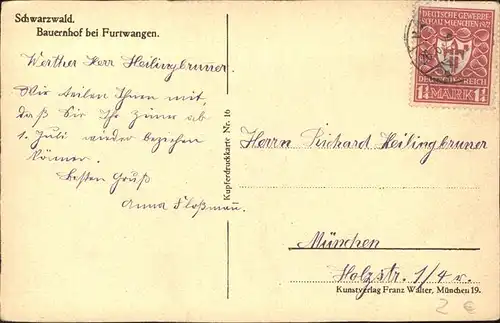 Schwarzwald.
Bauernhof bei Furtwangen.
Werther Herr Heilingbrunner.
Wir teilen Ihnen mit,
daß Sie Ihr Zimer ab
1. Juli wieder beziehen
können.
besten Gruß
Anna Floßmau.
Kupferdruckkarte Nr. 16
DEUTSCHE GEWERBE
SCHAU MÜNCHEN 1922
DEUTSCHES REICH
1¼ MARK 1¼
Herrn Richard Heilingbrunner
München
Holzstr. 1/4 r.
Kunstverlag Franz Walter, München 19.
2 €